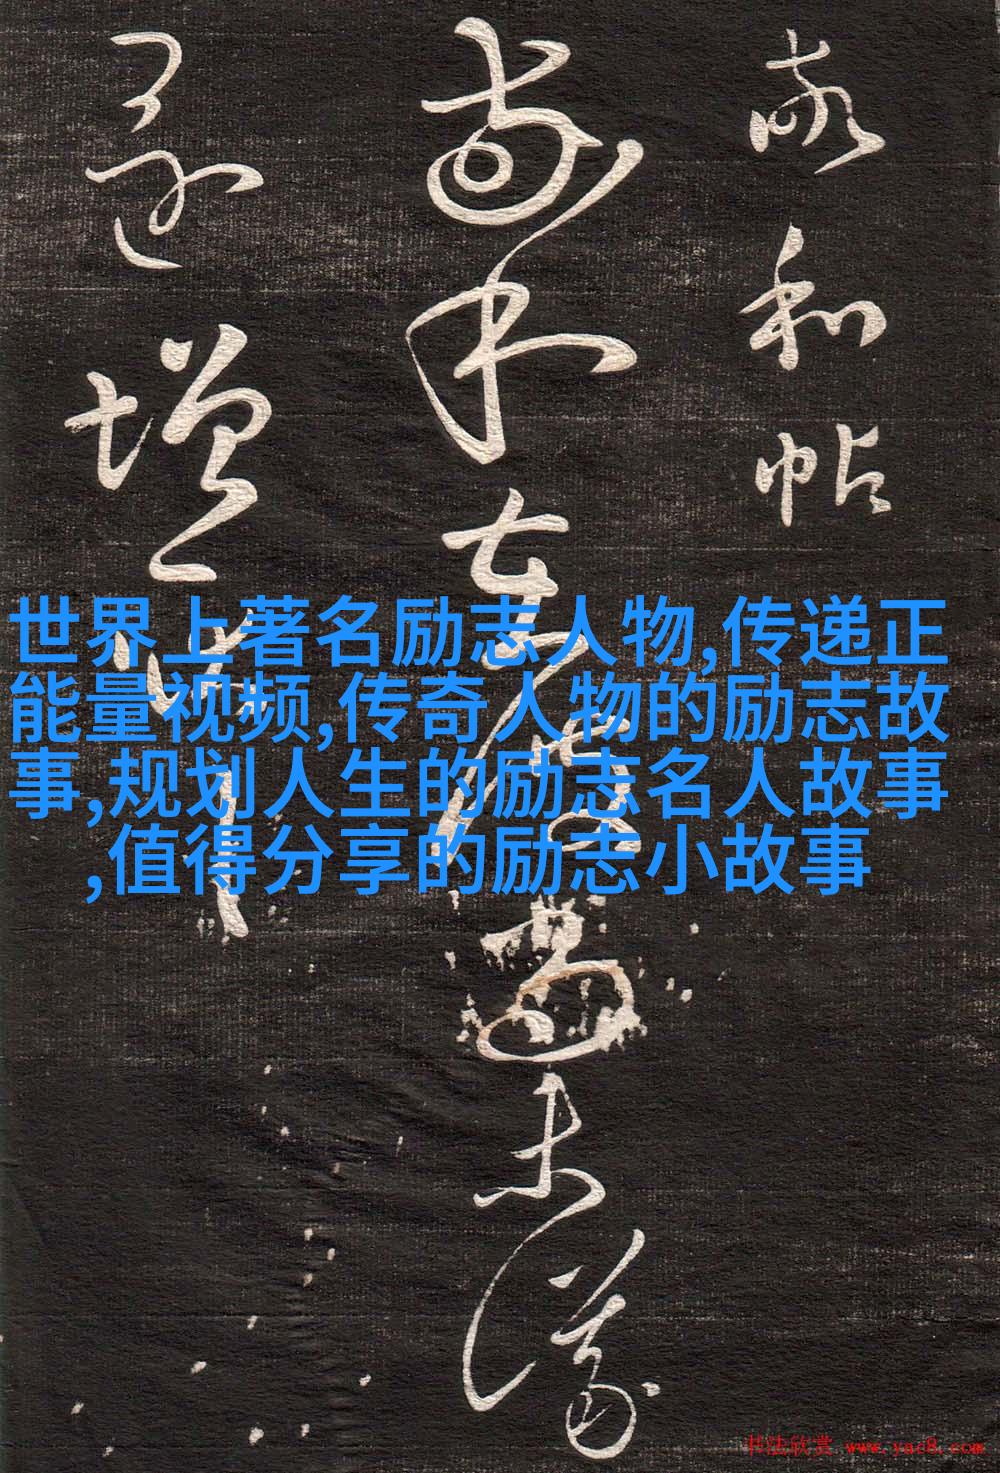 敬和帖
敬和在彼尚未議
還增耿
世界上著名励志人物,传递正
能量视频,传奇人物的励志故
事,规划人生的励志名人故事
,值得分享的励志小故事
书法欣赏 www.yac8.com